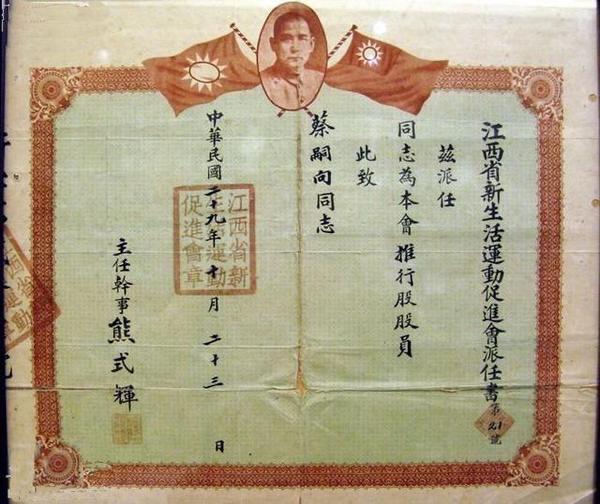 江西省新生活運動促進會派任書
第21號
茲派任
同志為本會推行股股員
此致
蔡嗣向同志
中華民國二十九年十月二十三日
江西省新
生活運動
促進會章
主任幹事熊式輝